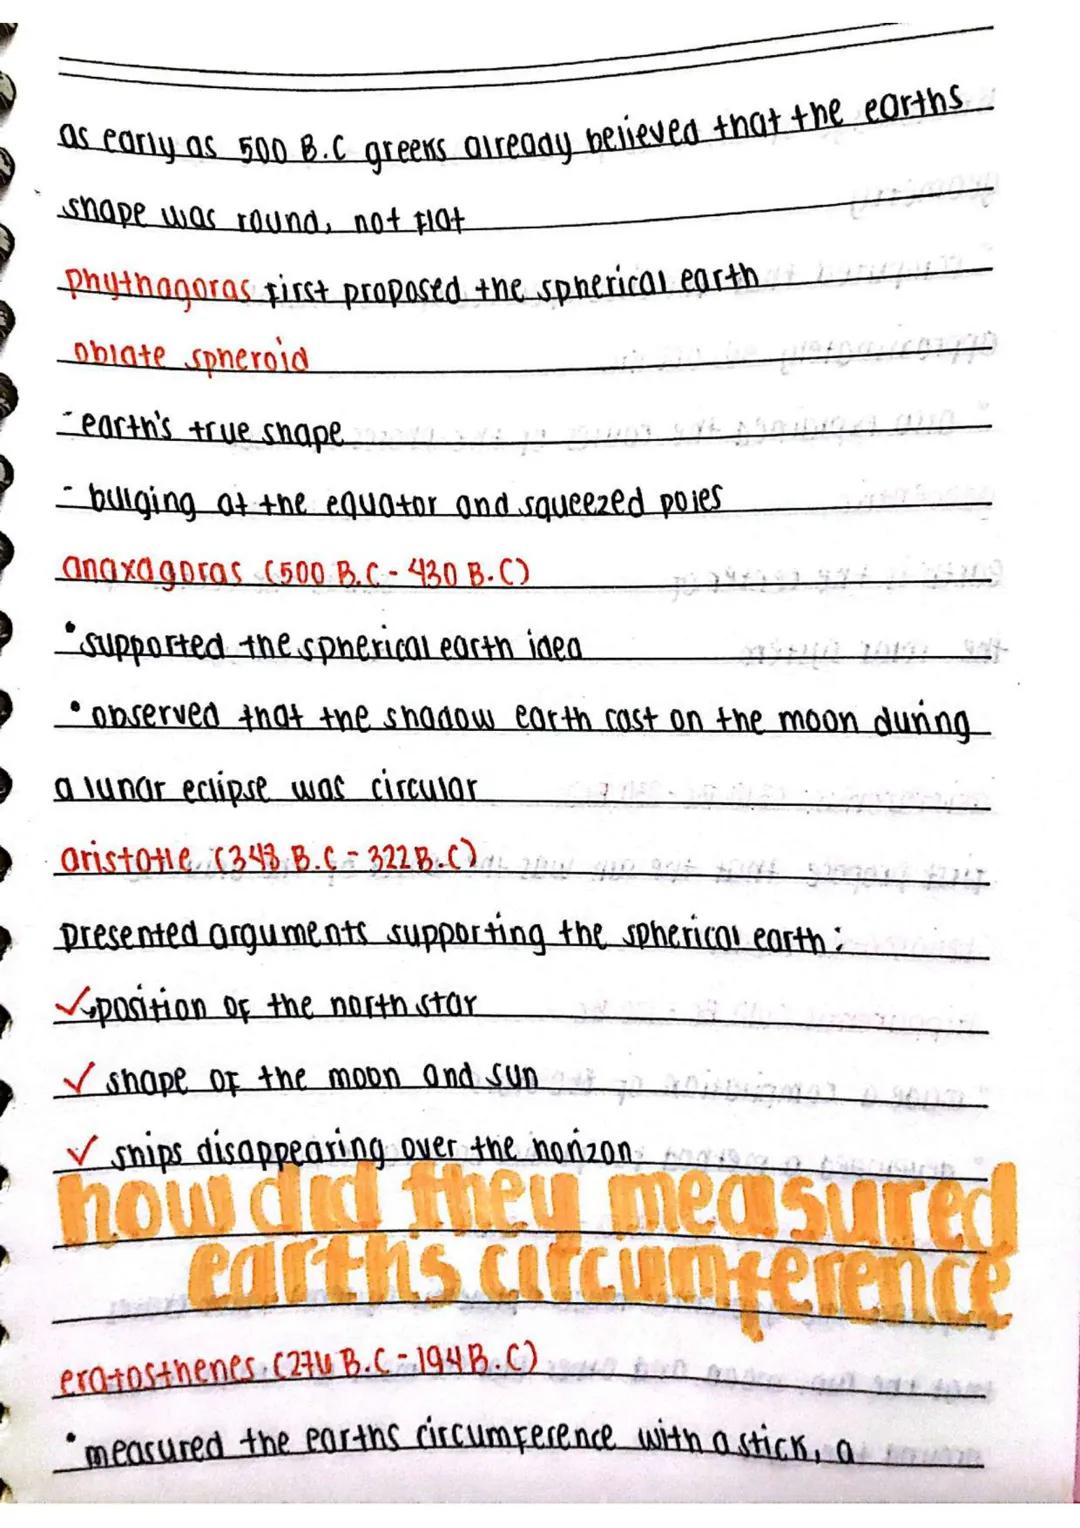 as early as 500 B.C greeks already believed that the earths
shape was round, not flat
phythagoras first proposed the spherical earth
oblate spheroid
- earth's true shape
- bulging at the equator and squeezed poles
anaxagoras (500 B.C. - 430 B.C)
• supported the spherical earth idea
• observed that the shadow earth cast on the moon during
a lunar eclipse was circular
aristotle (348 B.C - 322 B.C)
presented arguments supporting the spherical earth:
✓ position of the north star
✓ shape of the moon and sun
✓ ships disappearing over the horizon
how did they measured
earths circumference
eratosthenes (276 B.C - 194 B.C)
• measured the earths circumference with a stick, a